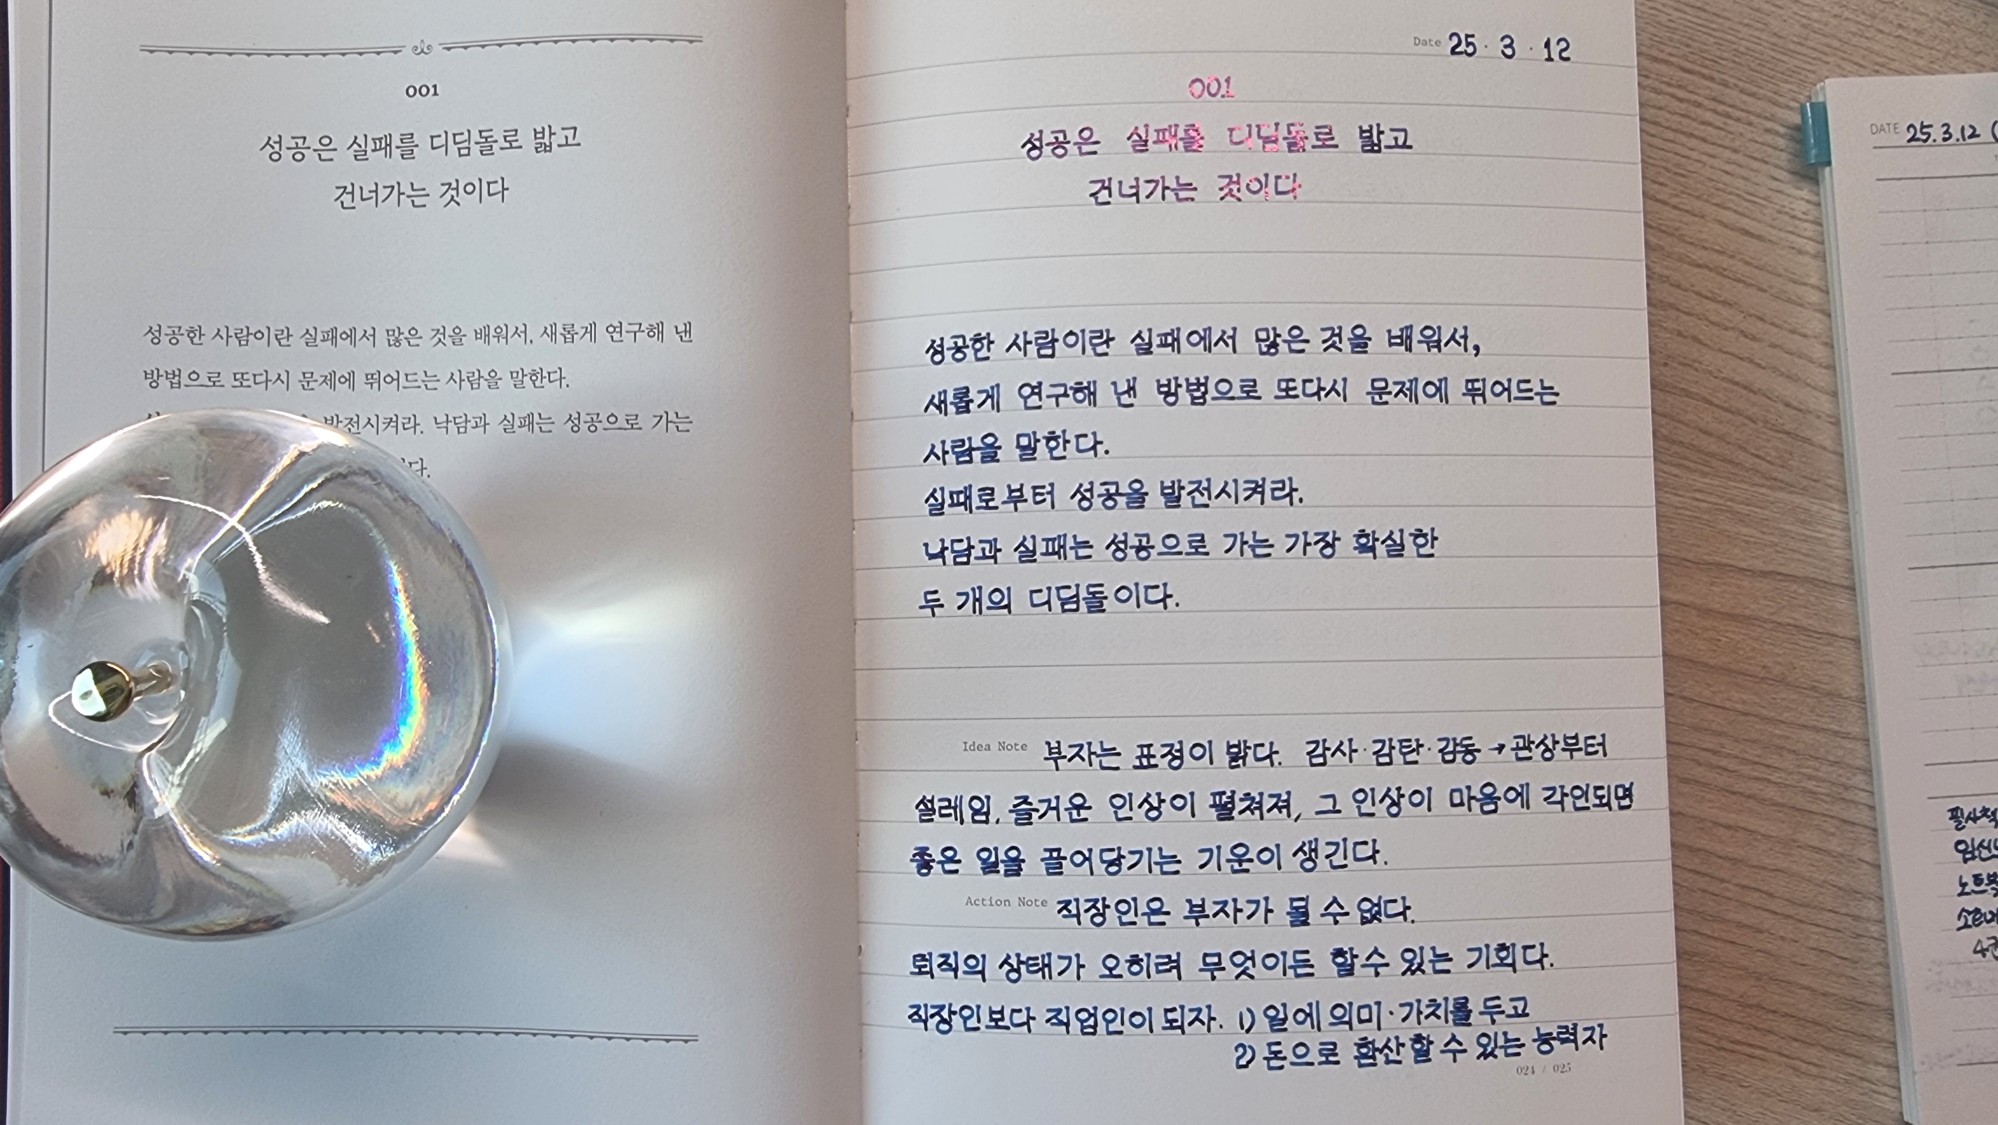 001
성공은 실패를 디딤돌로 밟고
건너가는 것이다
성공한 사람이란 실패에서 많은 것을 배워서, 새롭게 연구해 낸
방법으로 또다시 문제에 뛰어드는 사람을 말한다.
발전시켜라. 낙담과 실패는 성공으로 가는
다.
Date 25 · 3 · 12
001
성공은 실패를 디딤돌로 밟고
건너가는 것이다
성공한 사람이란 실패에서 많은 것을 배워서,
새롭게 연구해 낸 방법으로 또다시 문제에 뛰어드는
사람을 말한다.
실패로부터 성공을 발전시켜라.
낙담과 실패는 성공으로 가는 가장 확실한
두 개의 디딤돌이다.
Idea Note 부자는 표정이 밝다. 감사·감탄·감동 → 관상부터
설레임, 즐거운 인상이 펼쳐져, 그 인상이 마음에 각인되면
좋은 일을 끌어당기는 기운이 생긴다.
Action Note 직장인은 부자가 될 수 없다.
퇴직의 상태가 오히려 무엇이든 할 수 있는 기회다.
직장인보다 직업인이 되자. 1) 일에 의미·가치를 두고
2) 돈으로 환산할 수 있는 능력자
024 / 025
DATE 25.3.12 (